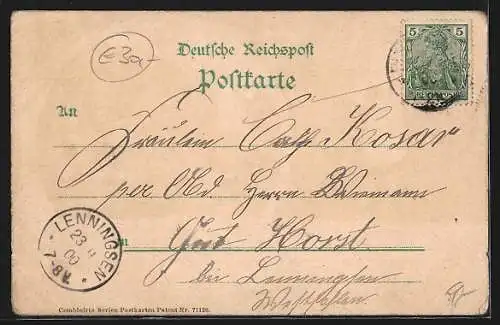 Deutsche Reichspost
Postkarte
5 5
An
Fräulein Kosar
per Herrn Wiemann
in
Gut Horst
bei Lenningsen
Westfalen.
LENNINGSEN
23
00
7-8
Combinirte Serien Postkarten Patent Nr. 71126.